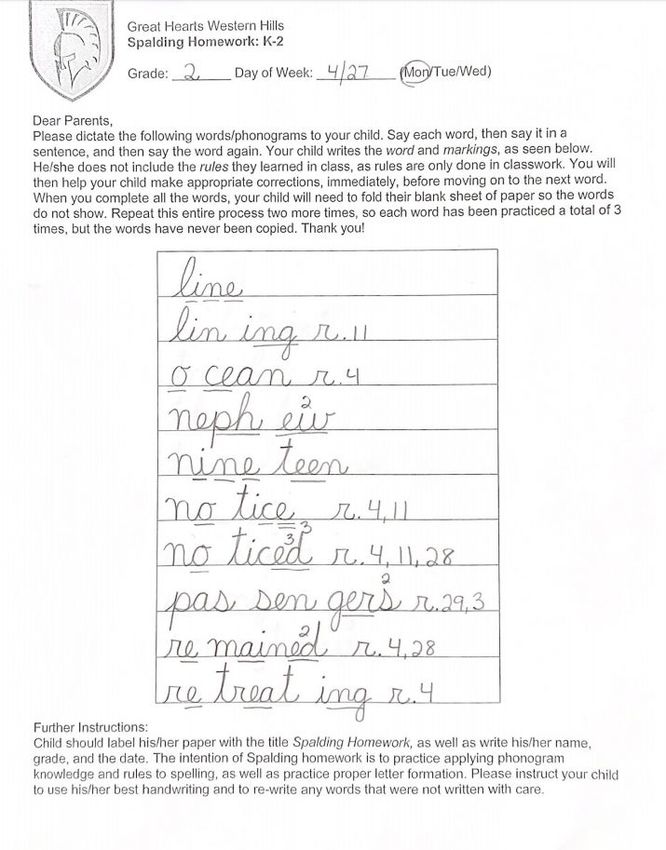 Great Hearts Western Hills
Spalding Homework: K-2
Grade: 2 Day of Week: 4/27 (Mon/Tue/Wed)
Dear Parents,
Please dictate the following words/phonograms to your child. Say each word, then say it in a
sentence, and then say the word again. Your child writes the word and markings, as seen below.
He/she does not include the rules they learned in class, as rules are only done in classwork. You will
then help your child make appropriate corrections, immediately, before moving on to the next word.
When you complete all the words, your child will need to fold their blank sheet of paper so the words
do not show. Repeat this entire process two more times, so each word has been practiced a total of 3
times, but the words have never been copied. Thank you!
line
lin ing r.11
o cean r.4
neph eiw 2
nine teen
no tice 3 r.4,11
no ticed 3 r.4,11,28
pas sen gers 2 r.29,3
re mained 2 r.4,28
re treat ing r.4
Further Instructions:
Child should label his/her paper with the title Spalding Homework, as well as write his/her name,
grade, and the date. The intention of Spalding homework is to practice applying phonogram
knowledge and rules to spelling, as well as practice proper letter formation. Please instruct your child
to use his/her best handwriting and to re-write any words that were not written with care.